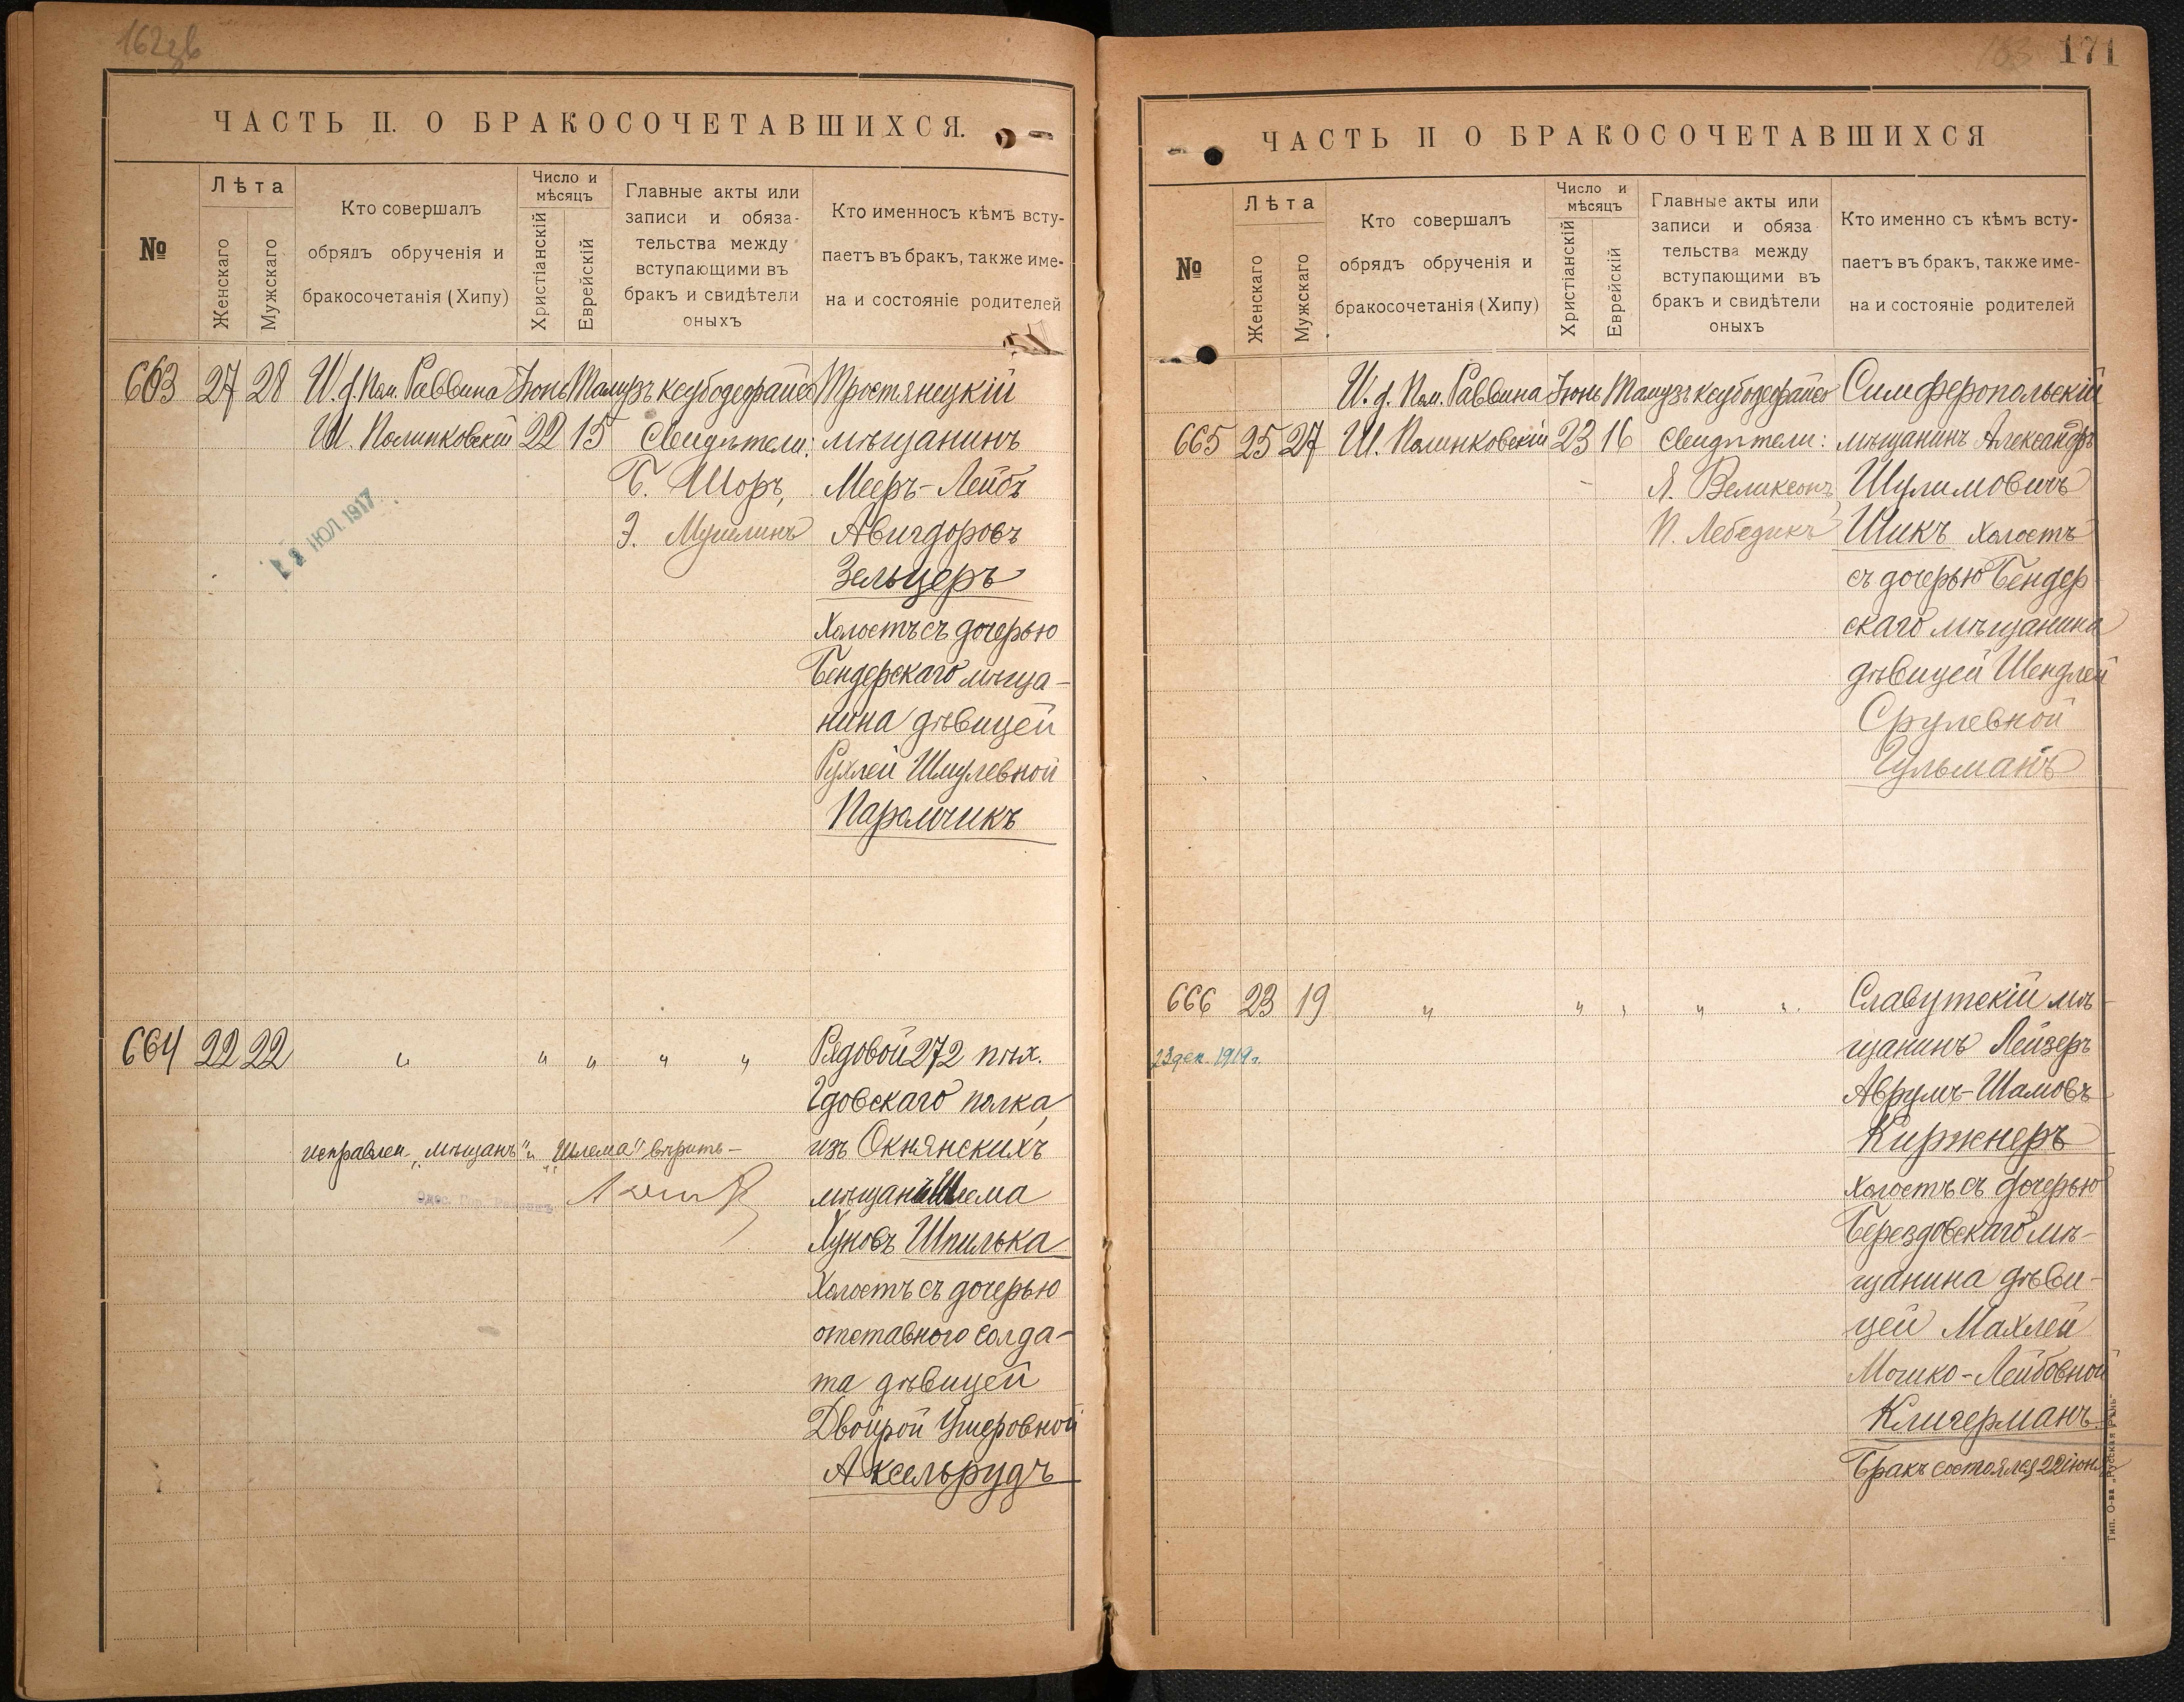 162 об
ЧАСТЬ II. О БРАКОСОЧЕТАВШИХСЯ.
№
Лѣта
Женскаго
Мужскаго
Кто совершалъ
обрядъ обрученія и
бракосочетанія (Хипу)
Число и
мѣсяцъ
Христіанскій
Еврейскій
Главные акты или
записи и обяза-
тельства между
вступающими въ
бракъ и свидѣтели
оныхъ
Кто именносъ кѣмъ всту-
паетъ въ бракъ, также име-
на и состояніе родителей
663 27 28 И. д. Пом. Раввина Іюнь Тамузъ ксубодефайсо Тростянецкій
Ш. Полинковскій 22 15 Свидѣтели: мѣщанинъ
Б. Шоръ, Мееръ-Лейбъ
Э. Авигдоровъ
Зельцеръ
холостъ съ дочерью
Бендерскаго мѣща-
нина дѣвицей
Рухлей Шмулевной
Паромчикъ
ІЮЛ. 1917
664 22 22 " " " " " Рядовой 272 пѣх.
Гдовскаго полка,
изъ Окнянскихъ
мѣщанъ Шлема
Хуновъ Шпилька
холостъ съ дочерью
отставного солда-
та дѣвицей
Двойрой Ушеровной
Аксельрудъ
исправлен. „мѣщанъ" и „Шлема" вѣрить —
Одес. Гор. Раввинъ
171
ЧАСТЬ II О БРАКОСОЧЕТАВШИХСЯ
№
Лѣта
Женскаго
Мужскаго
Кто совершалъ
обрядъ обрученія и
бракосочетанія (Хипу)
Число и
мѣсяцъ
Христіанскій
Еврейскій
Главные акты или
записи и обяза
тельства между
вступающими въ
бракъ и свидѣтели
оныхъ
Кто именно съ кѣмъ всту-
паетъ въ бракъ, также име-
на и состояніе родителей
И. д. Пом. Раввина Іюнь Тамузъ ксубодефайсо Симферопольскій
665 25 27 Ш. Полинковскій 23 16 Свидѣтели: мѣщанинъ Александръ
Я. Великсонъ Шулимовичъ
П. Лебедикъ Шикъ холостъ
съ дочерью Бендер-
скаго мѣщанина
дѣвицей Шендлей
Срулевной
Гульманъ
666 23 19 " " " " " Славутскій мѣ-
щанинъ Лейзеръ
Аврумъ-Шамовъ
Киржнеръ
холостъ съ дочерью
Берездовскаго мѣ-
щанина дѣви-
цей Махлей
Мошко-Лейбовной
Клигерманъ.
Бракъ состоялся 22 іюня
23 дек. 1919 г.
Тип. О-ва „Русская Рѣчь"